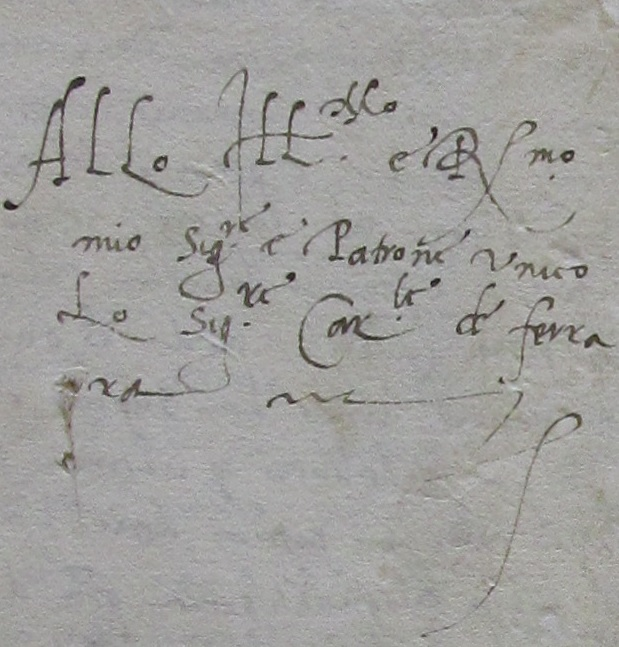 Allo Ill.mo e R.mo
mio Sig.re e Patrone Unico
Lo Sig.re Car.le de ferra
ra